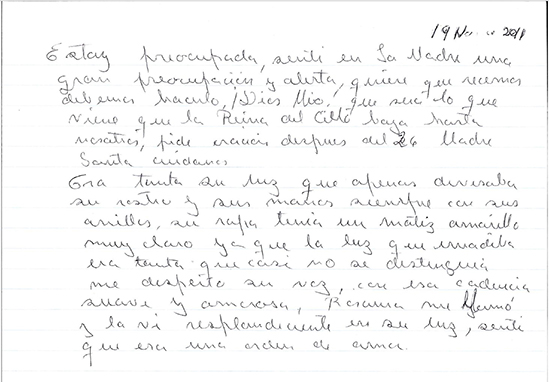 19 Nov 2011
Estoy preocupada, senti en La Madre una
gran preocupación y alerta, quiere que recemos
debemos hacerlo, ¡Dios Mio! que será lo que
viene que la Reina del Cielo baja hasta
nosotros, pide oración despues del 26 Madre
Santa cuidanos
Era tanta su luz que apenas divisaba
su rostro y sus manos siempre con sus
anillos, su ropa tenia un matiz amarillo
muy claro ya que la luz que irradiba
era tanta que casi no se distinguia
me desperto su voz, con esa cadencia
suave y amorosa, Rosanna me llamó
y la vi resplandeciente en su luz, senti
que era una orden de amor.